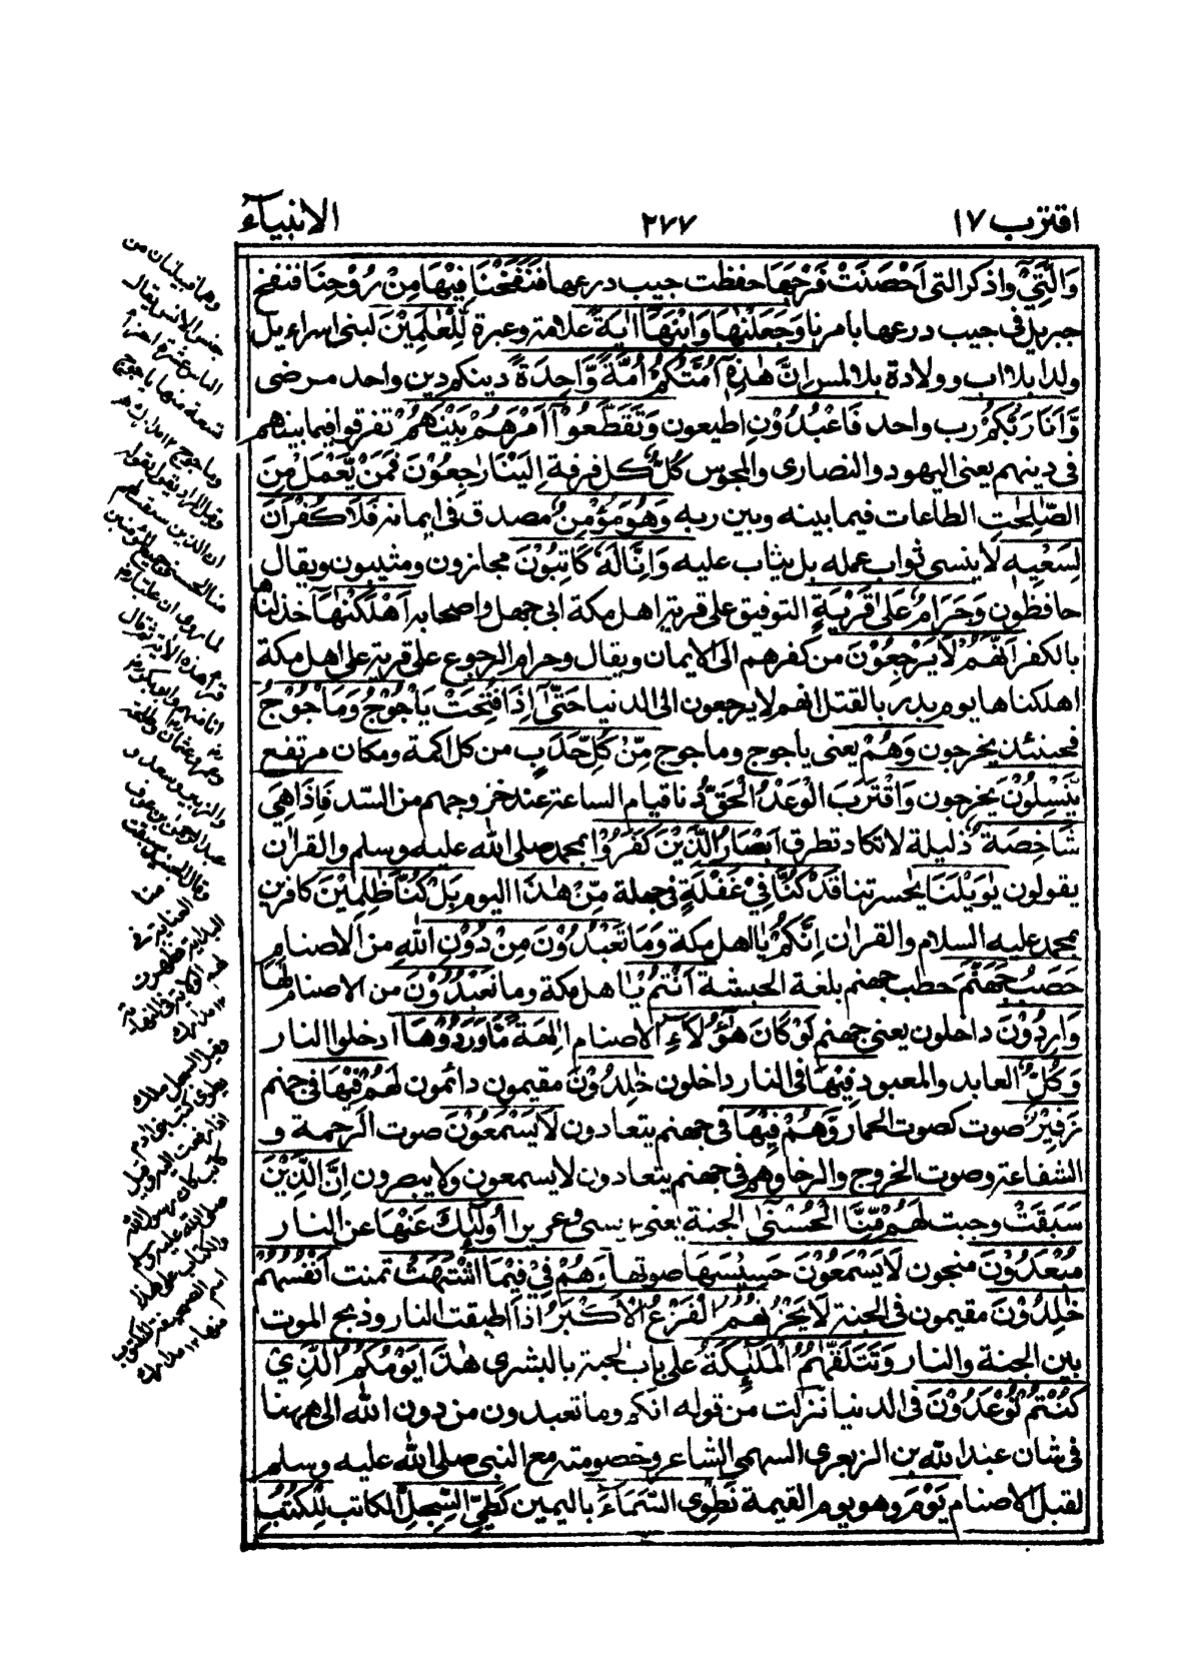 اقترب ١٧
٢٧٧
الانبیآء
وَالَّتِیْۤ واذکر التی اَحْصَنَتْ فَرْجَهَا حفظت جیب درعها فَنَفَخْنَا فِیْهَا مِنْ رُّوْحِنَا فنفخ
جبریل فی جیب درعها بامرنا وَجَعَلْنٰهَا وَابْنَهَاۤ اٰیَةً علامة وعبرة لِّلْعٰلَمِیْنَ لبنی اسراءیل
ولدا بلا اب وولادة بلا لمس اِنَّ هٰذِهٖۤ اُمَّتُكُمْ اُمَّةً وَّاحِدَةً دینکم دین واحد مرضی
وَّاَنَا رَبُّكُمْ رب واحد فَاعْبُدُوْنِ اطیعون وَتَقَطَّعُوْۤا اَمْرَهُمْ بَیْنَهُمْ تفرقوا فیما بینهم
فی دینهم یعنی الیهود والنصاری والمجوس كُلٌّ کل فرقة اِلَیْنَا رٰجِعُوْنَ فَمَنْ یَّعْمَلْ مِنَ
الصّٰلِحٰتِ الطاعات فیما بینه وبین ربه وَهُوَ مُؤْمِنٌ مصدق فی ایمانه فَلَا كُفْرَانَ
لِسَعْیِهٖ لا ینسی ثواب عمله بل یثاب علیه وَاِنَّا لَهٗ كَاتِبُوْنَ مجازون ومثیبون ویقال
حافظون وَحَرَامٌ عَلٰی قَرْیَةٍ التوفیق علی قریة اهل مکة ابی جهل واصحابه اَهْلَكْنٰهَاۤ خذلناها
بالکفر اَنَّهُمْ لَا یَرْجِعُوْنَ من کفرهم الی الایمان ویقال وحرام الرجوع علی قریة علی اهل مکة
اهلکناها یوم بدر بالقتل انهم لا یرجعون الی الدنیا حَتّٰۤی اِذَا فُتِحَتْ یَاْجُوْجُ وَمَاْجُوْجُ
فحینئذ یخرجون وَهُمْ یعنی یاجوج وماجوج مِّنْ كُلِّ حَدَبٍ من کل اکمة ومکان مرتفع
یَّنْسِلُوْنَ یخرجون وَاقْتَرَبَ الْوَعْدُ الْحَقُّ دنا قیام الساعة عند خروجهم من السّد فَاِذَا هِیَ
شَاخِصَةٌ ذلیلة لا تکاد تطرق اَبْصَارُ الَّذِیْنَ كَفَرُوْا بمحمد صلی الله علیه وسلم والقراٰن
یقولون یٰوَیْلَنَا یاحسرتنا قَدْ كُنَّا فِیْ غَفْلَةٍ فی جهلة مِّنْ هٰذَا الیوم بَلْ كُنَّا ظٰلِمِیْنَ کافرین
بمحمد علیه السلام والقراٰن اِنَّكُمْ یا اهل مکة وَمَا تَعْبُدُوْنَ مِنْ دُوْنِ اللّٰهِ من الاصنام
حَصَبُ جَهَنَّمَ حطب جهنم بلغة الحبشة اَنْتُمْ یا اهل مکة وما تعبدون من الاصنام لَهَا
وَارِدُوْنَ داخلون یعنی جهنم لَوْ كَانَ هٰۤؤُلَآءِ الاصنام اٰلِهَةً مَّا وَرَدُوْهَا ادخلوا النار
وَكُلٌّ العابد والمعبود فِیْهَا فی النار داخلون خٰلِدُوْنَ مقیمون دائمون لَهُمْ فِیْهَا فی جهنم
زَفِیْرٌ صوت کصوت الحمار وَّهُمْ فِیْهَا فی جهنم یتعادون لَا یَسْمَعُوْنَ صوت الرحمة و
الشفاعة وصوت الخروج والرخا وهم فی جهنم یتعادون لا یسمعون ولا یبصرون اِنَّ الَّذِیْنَ
سَبَقَتْ وجبت لَهُمْ مِّنَّا الْحُسْنٰۤی الجنة یعنی عیسی وعزیرا اُولٰٓئِكَ عَنْهَا عن النار
مُبْعَدُوْنَ منجون لَا یَسْمَعُوْنَ حَسِیْسَهَا صوتها وَهُمْ فِیْ مَا اشْتَهَتْ تمنت اَنْفُسُهُمْ
خٰلِدُوْنَ مقیمون فی الجنة لَا یَحْزُنُهُمُ الْفَزَعُ الْاَكْبَرُ اذا اطبقت النار وذبح الموت
بین الجنة والنار وَتَتَلَقّٰهُمُ الْمَلٰٓئِكَةُ علی باب الجنة بالبشری هٰذَا یَوْمُكُمُ الَّذِیْ
كُنْتُمْ تُوْعَدُوْنَ فی الدنیا نزلت من قوله انکم وما تعبدون من دون الله الی ههنا
فی شان عبد الله بن الزبعری السهمی الشاعر وخصومته مع النبی صلی الله علیه وسلم
لقبل الاصنام یَوْمَ وهو یوم القیمة نَطْوِی السَّمَآءَ بالیمین كَطَیِّ السِّجِلِّ الکاتب لِلْكُتُبِ
وهما قبیلتان من
جنس الانس یقال
الناس عشرة اجزاء
تسعة منها یاجوج
وماجوج
ان الذین سبقت لهم
منا الحسنی
لما روی ان علیا رض
قرأ هذه الایة ثم قال
انا منهم وابوبکر رض
وعمر وعثمان وطلحة
والزبیر وسعد و
عبد الرحمن بن عوف
وقیل السجل ملك
یطوی کتب بنی آدم
اذا رفعت الیه وقیل
کاتب کان لرسول الله
صلی الله علیه وسلم
والکتاب علی هذا
اسم الصحیفة المکتوب
فیها ١٢ مدارك